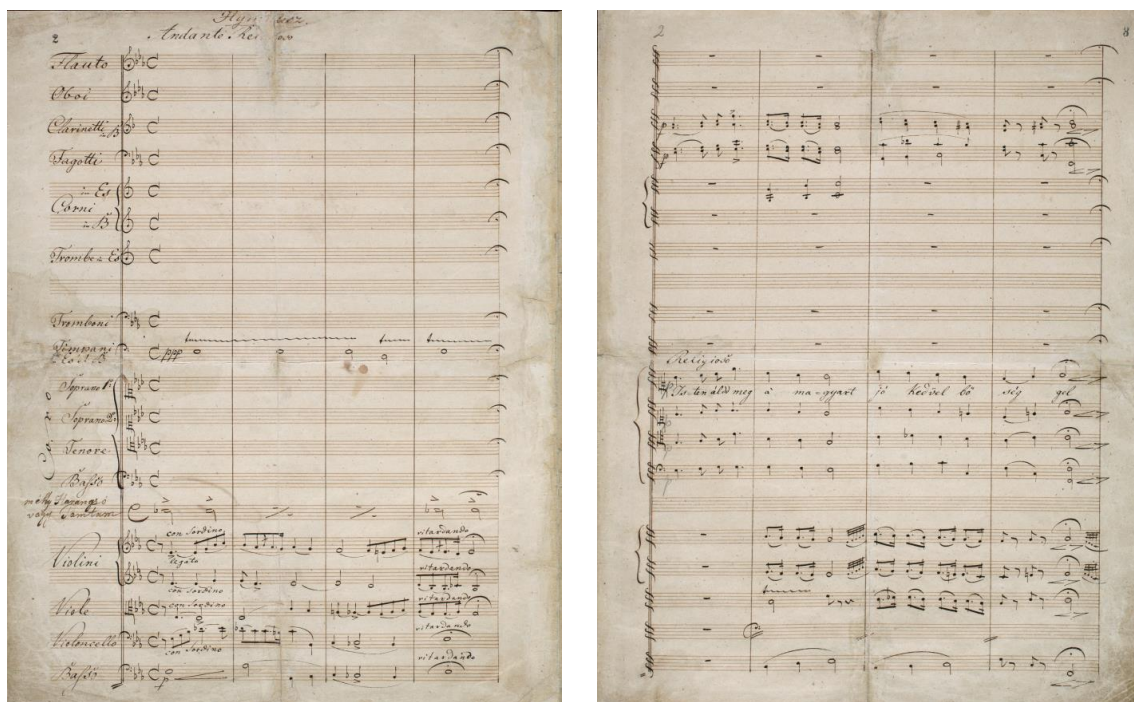 Hymnusz
2
Andante Religioso
Flauto
Oboi
Clarinetti in B
Fagotti
in Es
Corni
in B
Trombe in Es
Tromboni
Timpani
ppp
Soprano 1o
Soprano 2o
Tenore
Basso
mély Harang
vagy Tamtam
Violini
con Sordino
legato
ritardando
con Sordino
ritardando
Viole
con Sordino
ritardando
Violoncello
con Sordino
ritardando
Basso
p
ritardando
2
8
Religioso
Isten áldd meg a magyart jó kedvel bő ség gel